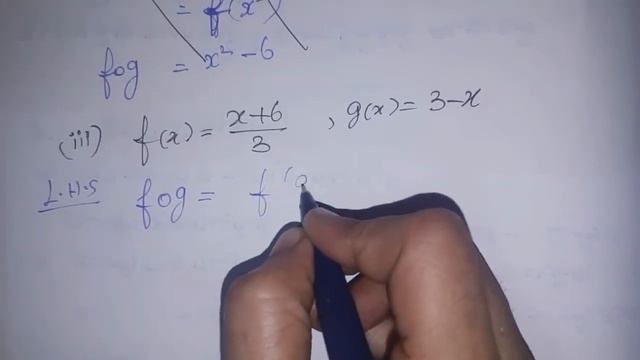 = f(x²)
fog = x² - 6
(iii) f(x) = \frac{x+6}{3} , g(x) = 3-x
L.H.S fog = f(g